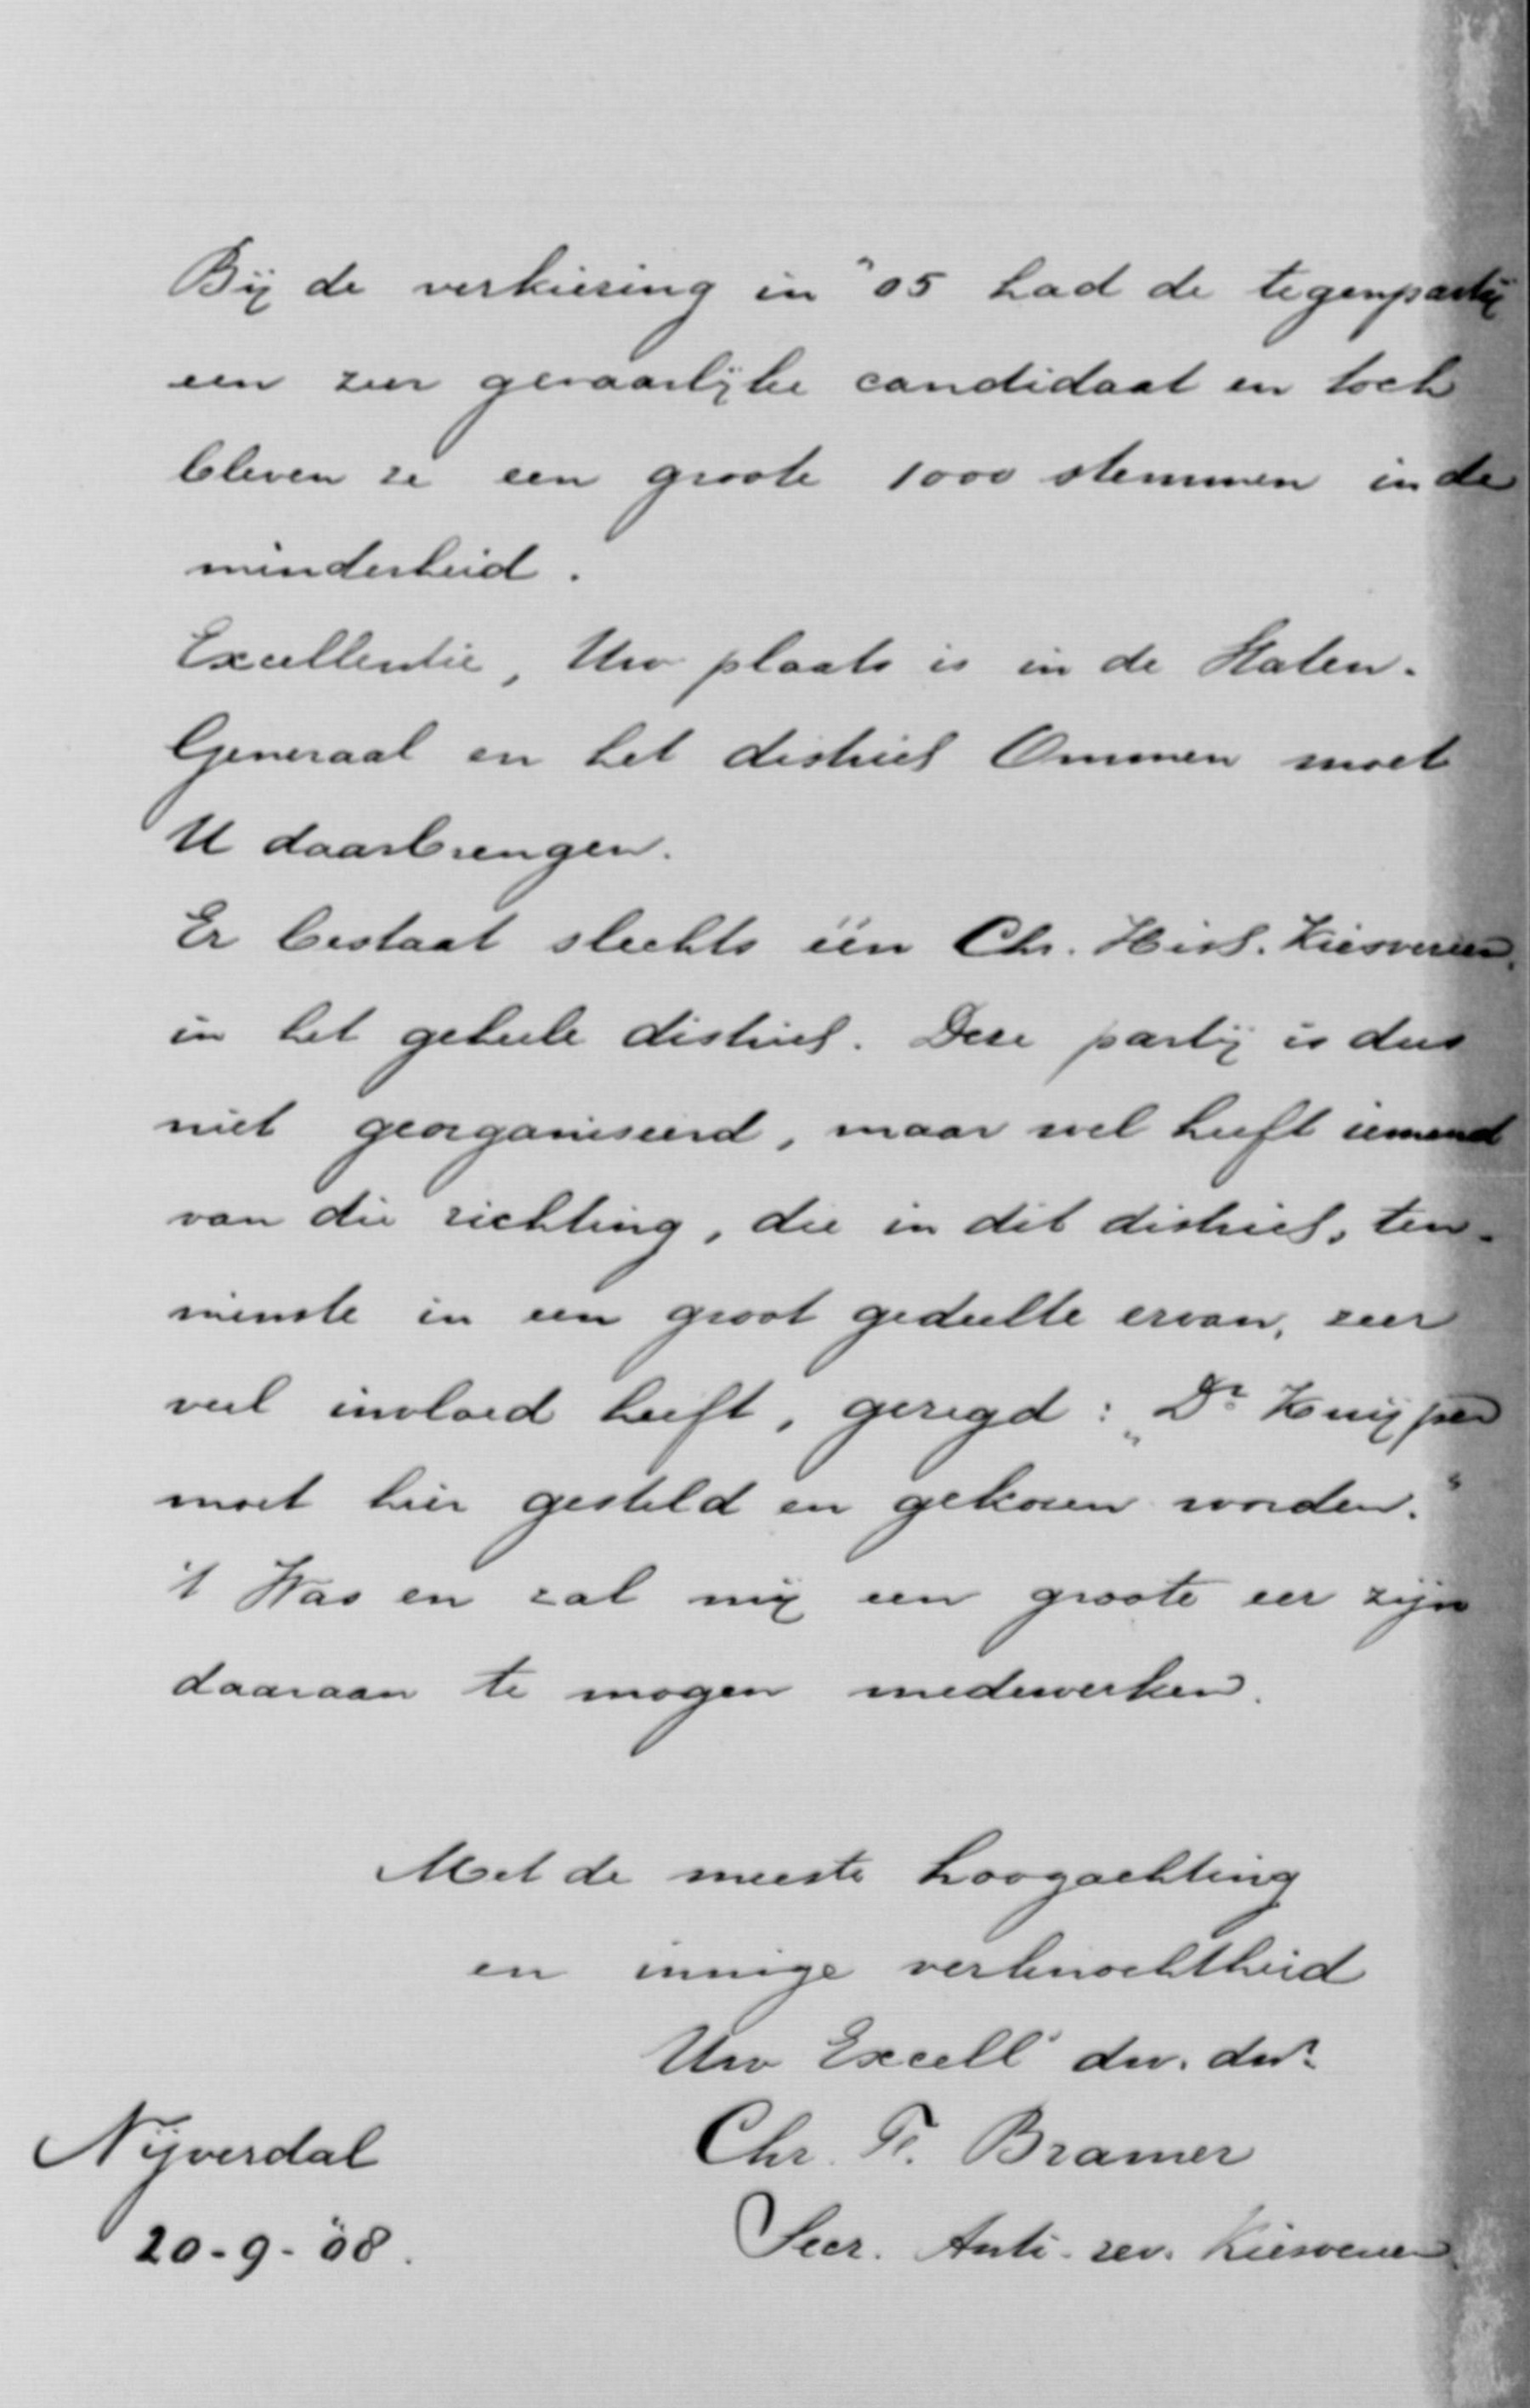 Bij de verkiezing in "05 had de tegenpartij
een zeer gevaarlijke candidaat en toch
bleven ze een groote 1000 stemmen in de
minderheid.
Excellentie, Uw plaats is in de Staten-
Generaal en het district Ommen moet
U daarbrengen.
Er bestaat slechts één Chr. Hist. Kiesvereen.
in het geheele district. Deze partij is dus
niet georganiseerd, maar wel heeft iemand
van die richting, die in dit district, ten-
minste in een groot gedeelte ervan, zeer
veel invloed heeft, gezegd: „Dr Kuijper
moet hier gesteld en gekozen worden."
't Was en zal mij een groote eer zijn
daaraan te mogen medewerken.
Met de meeste hoogachting
en innige verknochtheid
Uw Excell dw. dnr
Chr. Fr. Bramer
Nijverdal
Secr. Anti-rev. Kiesvereen.
20-9-"08.